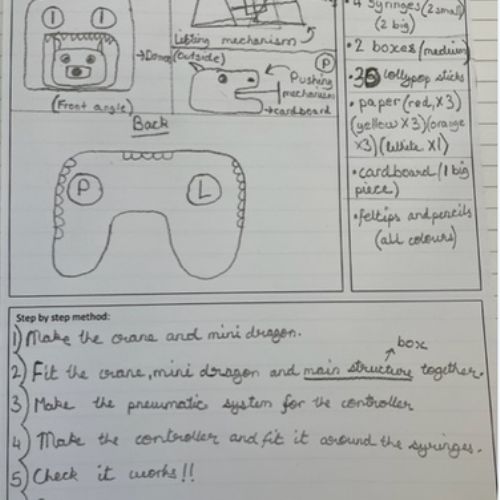 Lifting mechanism
(Outside)
(Front angle)
P
Pushing
mechanism
→cardboard
Back
P
L
• 4 syringes (2 small)
(2 big)
• 2 boxes (medium)
lollypop sticks
• paper (red, x3)
(yellow x3) (orange
x3) (white x1)
• cardboard (1 big
piece)
• feltips and pencils
(all colours)
Step by step method:
1) Make the crane and mini dragon.
box
2) Fit the crane, mini dragon and main structure together.
3) Make the pneumatic system for the controller
4) Make the controller and fit it around the syringes.
5) Check it works!!